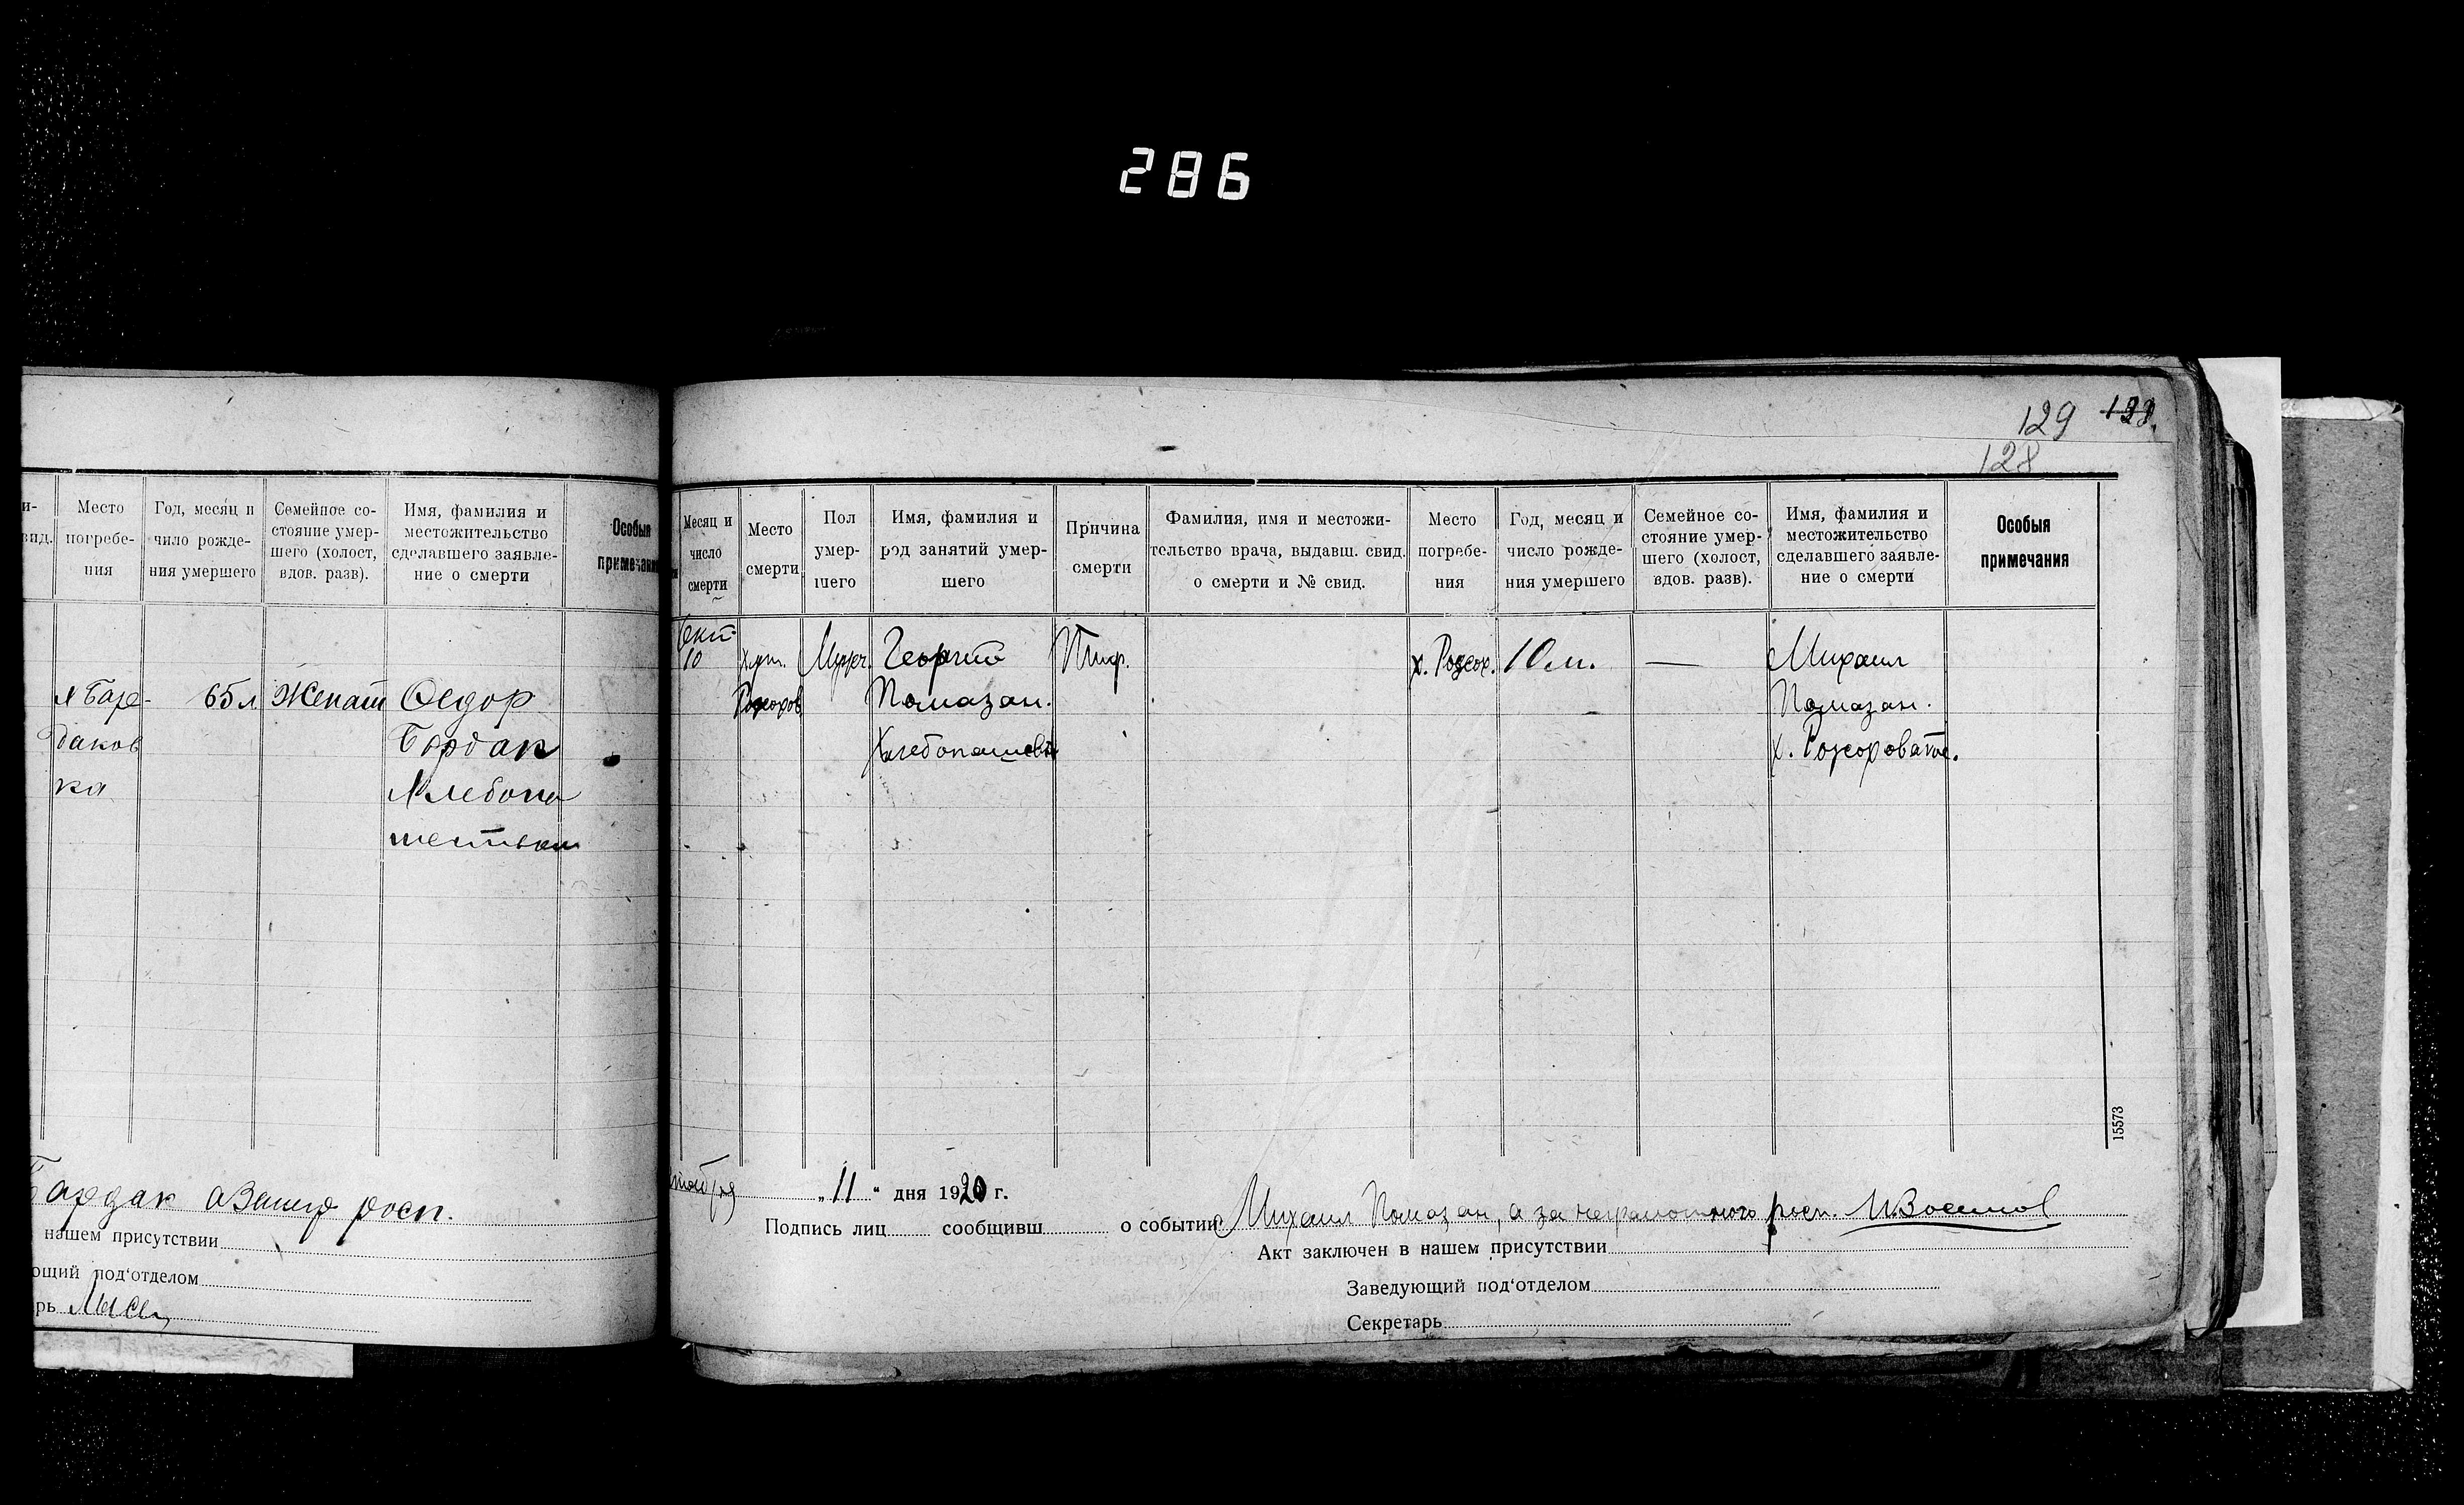 286
и-
вид.
Место
погребе-
ния
Год, месяц и
число рожде-
ния умершего
Семейное со-
стояние умер-
шего (холост,
вдов. разв).
Имя, фамилия и
местожительство
сделавшего заявле-
ние о смерти
Особыя
примечания
65 л
Женат
Федор
Бардак
Хлебопа
шеством
ка
Бардак
росп.
нашем присутствии
ющий под'отделом
рь
129
128
Месяц и
число
смерти
Место
смерти
Пол
умер-
шего
Имя, фамилия и
род занятий умер-
шего
Причина
смерти
Фамилия, имя и местожи-
тельство врача, выдавш. свид.
о смерти и № свид.
Место
погребе-
ния
Год, месяц и
число рожде-
ния умершего
Семейное со-
стояние умер-
шего (холост,
вдов. разв).
Имя, фамилия и
местожительство
сделавшего заявле-
ние о смерти
Особыя
примечания
Окт.
10
хут.
Мужч.
Георгий
Помазан.
Хлебопашев
Тиф.
10 м.
—
Михаил
Помазан.
х.
15573
тября „11“ дня 1920 г.
Подпись лиц сообщивш о событии Михаил Помазан, а за неграмотного росп.
Акт заключен в нашем присутствии
Заведующий под'отделом
Секретарь